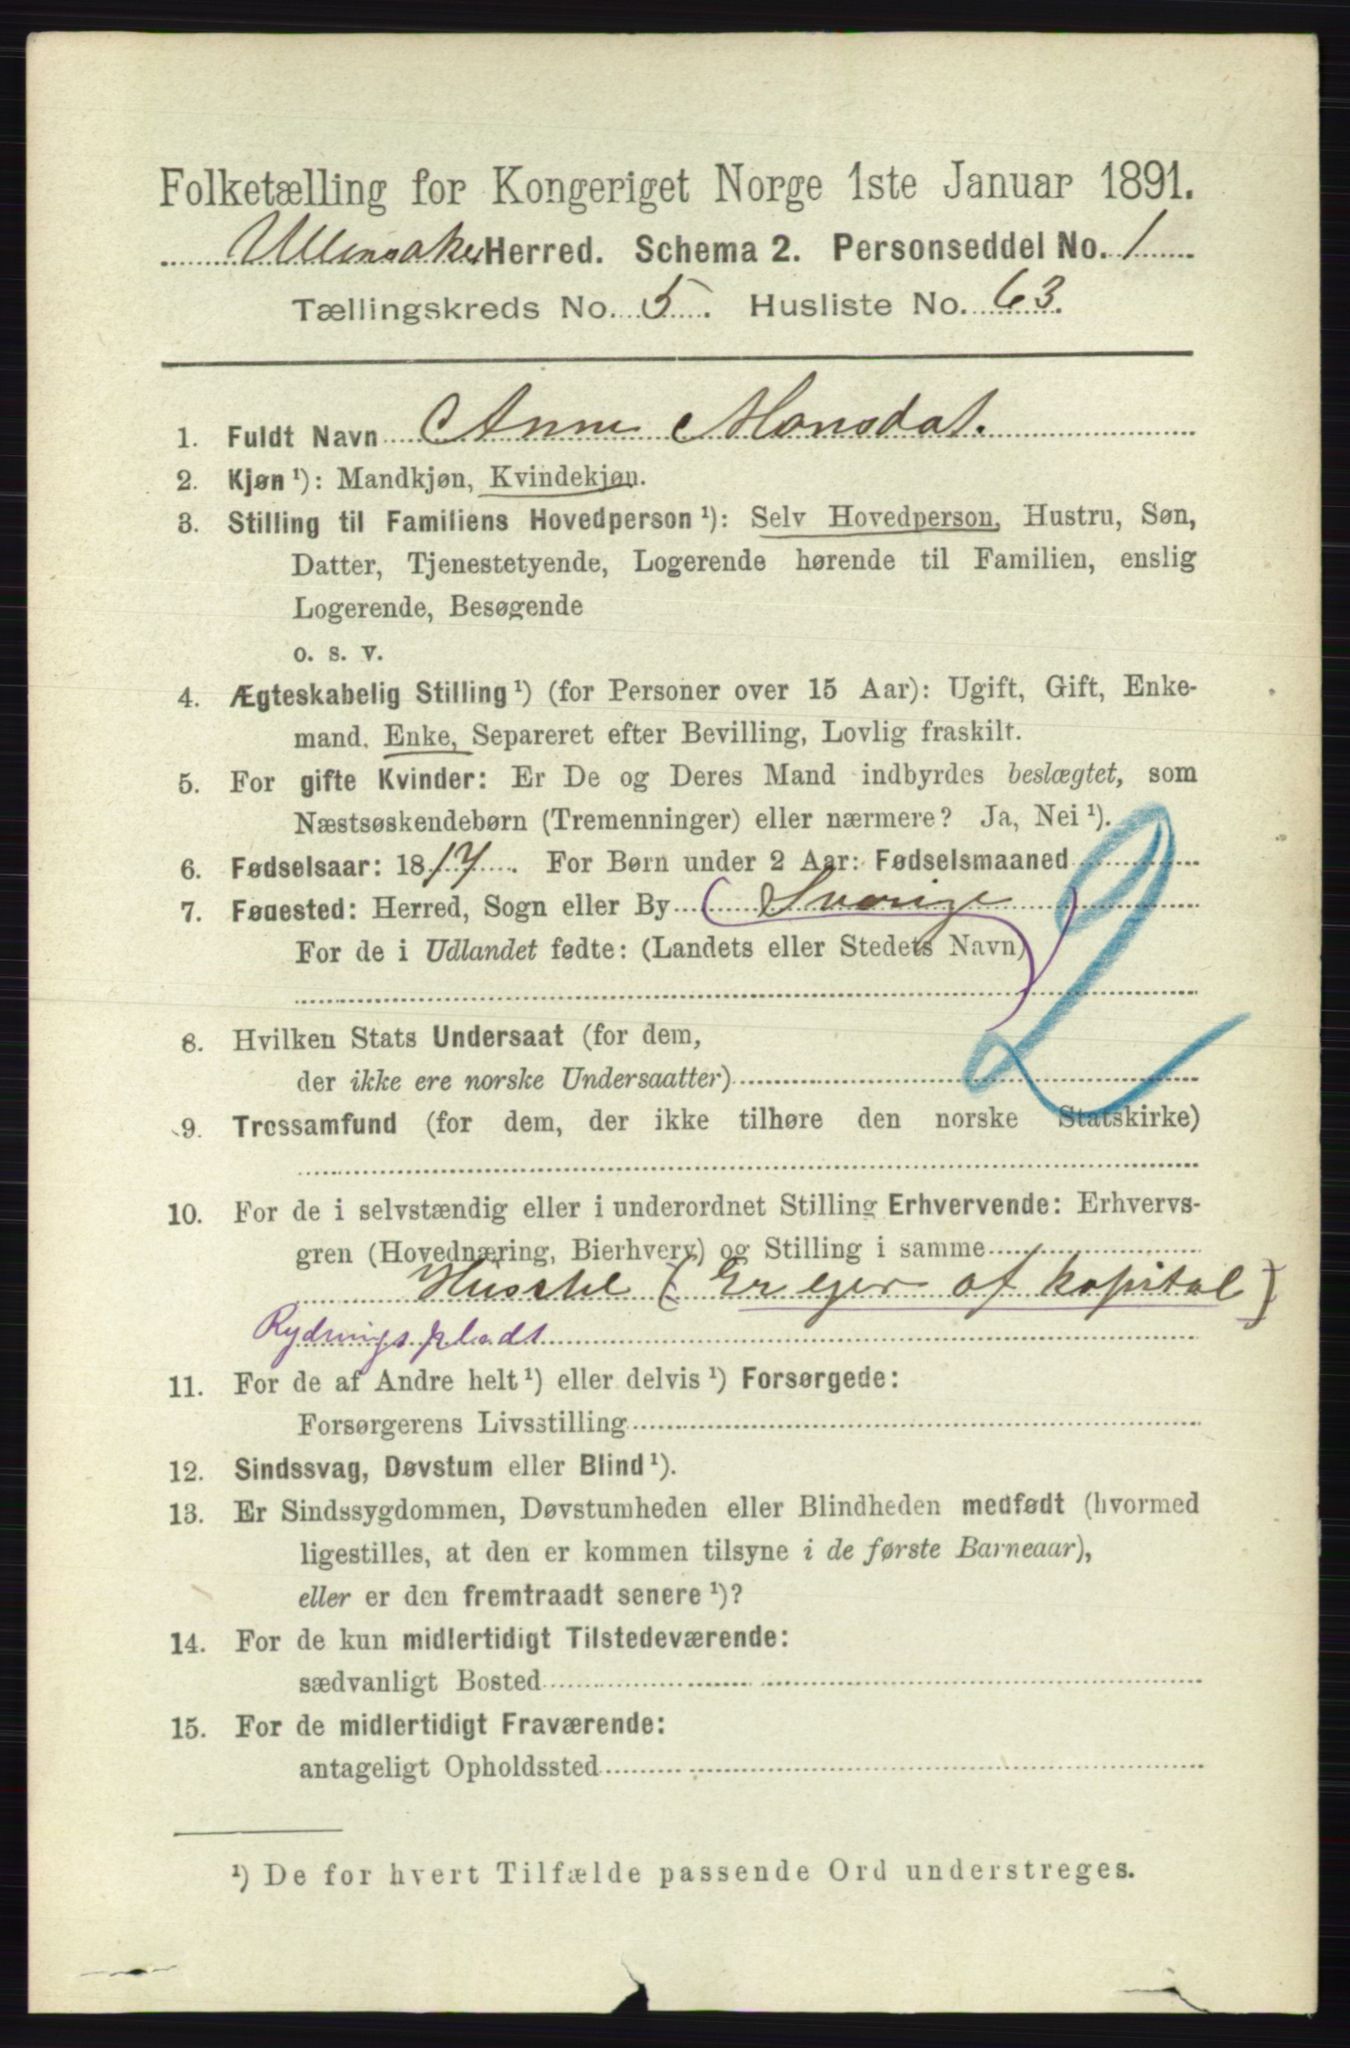 Folketælling for Kongeriget Norge 1ste Januar 1891.
Ullensaker Herred. Schema 2. Personseddel No. 1
Tællingskreds No. 5. Husliste No. 63.
1. Fuldt Navn Anne Monsdat.
2. Kjøn ¹): Mandkjøn, Kvindekjøn.
3. Stilling til Familiens Hovedperson ¹): Selv Hovedperson, Hustru, Søn,
Datter, Tjenestetyende, Logerende hørende til Familien, enslig
Logerende, Besøgende
o. s. v.
4. Ægteskabelig Stilling ¹) (for Personer over 15 Aar): Ugift, Gift, Enke-
mand, Enke, Separeret efter Bevilling, Lovlig fraskilt.
5. For gifte Kvinder: Er De og Deres Mand indbyrdes beslægtet, som
Næstsøskendebørn (Tremenninger) eller nærmere? Ja, Nei ¹).
6. Fødselsaar: 1817. For Børn under 2 Aar: Fødselsmaaned
7. Fødested: Herred, Sogn eller By (Sverige)
For de i Udlandet fødte: (Landets eller Stedets Navn)
2
8. Hvilken Stats Undersaat (for dem,
der ikke ere norske Undersaatter)
9. Trossamfund (for dem, der ikke tilhøre den norske Statskirke)
10. For de i selvstændig eller i underordnet Stilling Erhvervende: Erhvervs-
gren (Hovednæring, Bierhverv) og Stilling i samme
(Er ejer af kapital)
Rydningsplads
11. For de af Andre helt ¹) eller delvis ¹) Forsørgede:
Forsørgerens Livsstilling
12. Sindssvag, Døvstum eller Blind ¹).
13. Er Sindssygdommen, Døvstumheden eller Blindheden medfødt (hvormed
ligestilles, at den er kommen tilsyne i de første Barneaar),
eller er den fremtraadt senere ¹)?
14. For de kun midlertidigt Tilstedeværende:
sædvanligt Bosted
15. For de midlertidigt Fraværende:
antageligt Opholdssted
¹) De for hvert Tilfælde passende Ord understreges.